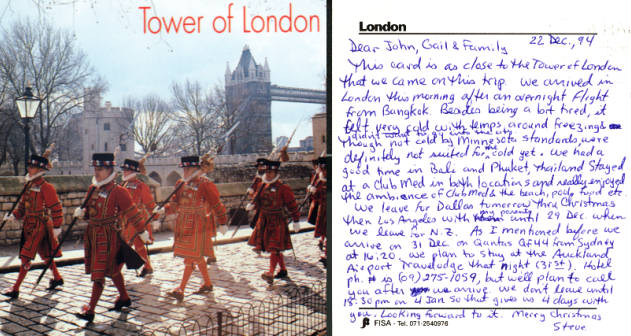 Tower of London
London
Dear John, Gail & Family 22 Dec., 94
This card is as close to the Tower of London
that we came on this trip. We arrived in
London this morning after an overnight flight
from Bangkok. Besides being a bit tired, it
felt very cold with temps around freezing
& didn't want to go into the city
Though not cold by Minnesota standards, were
definitely not suited for the cold yet. We had a
good time in Bali and Phuket, Thailand Stayed
at a Club Med in both locations and really enjoyed
the ambience of Club Meds the beach, pool, food etc.
We leave for Dallas tomorrow thru Christmas
then Los Angeles with my parents until 29 Dec when
we leave for N.Z. As I mentioned before we
arrive on 31 Dec on Qantas QF44 from Sydney
at 16:20. We plan to stay at the Auckland
Airport Travelodge that night (31st). Hotel
ph. # is (09) 275-1059, but we'll plan to call
you after we arrive. We don't leave until
18:30pm on 4 Jan so that gives us 4 days with
you. Looking forward to it. Merry Christmas
Steve
FISA - Tel. 071-2540976